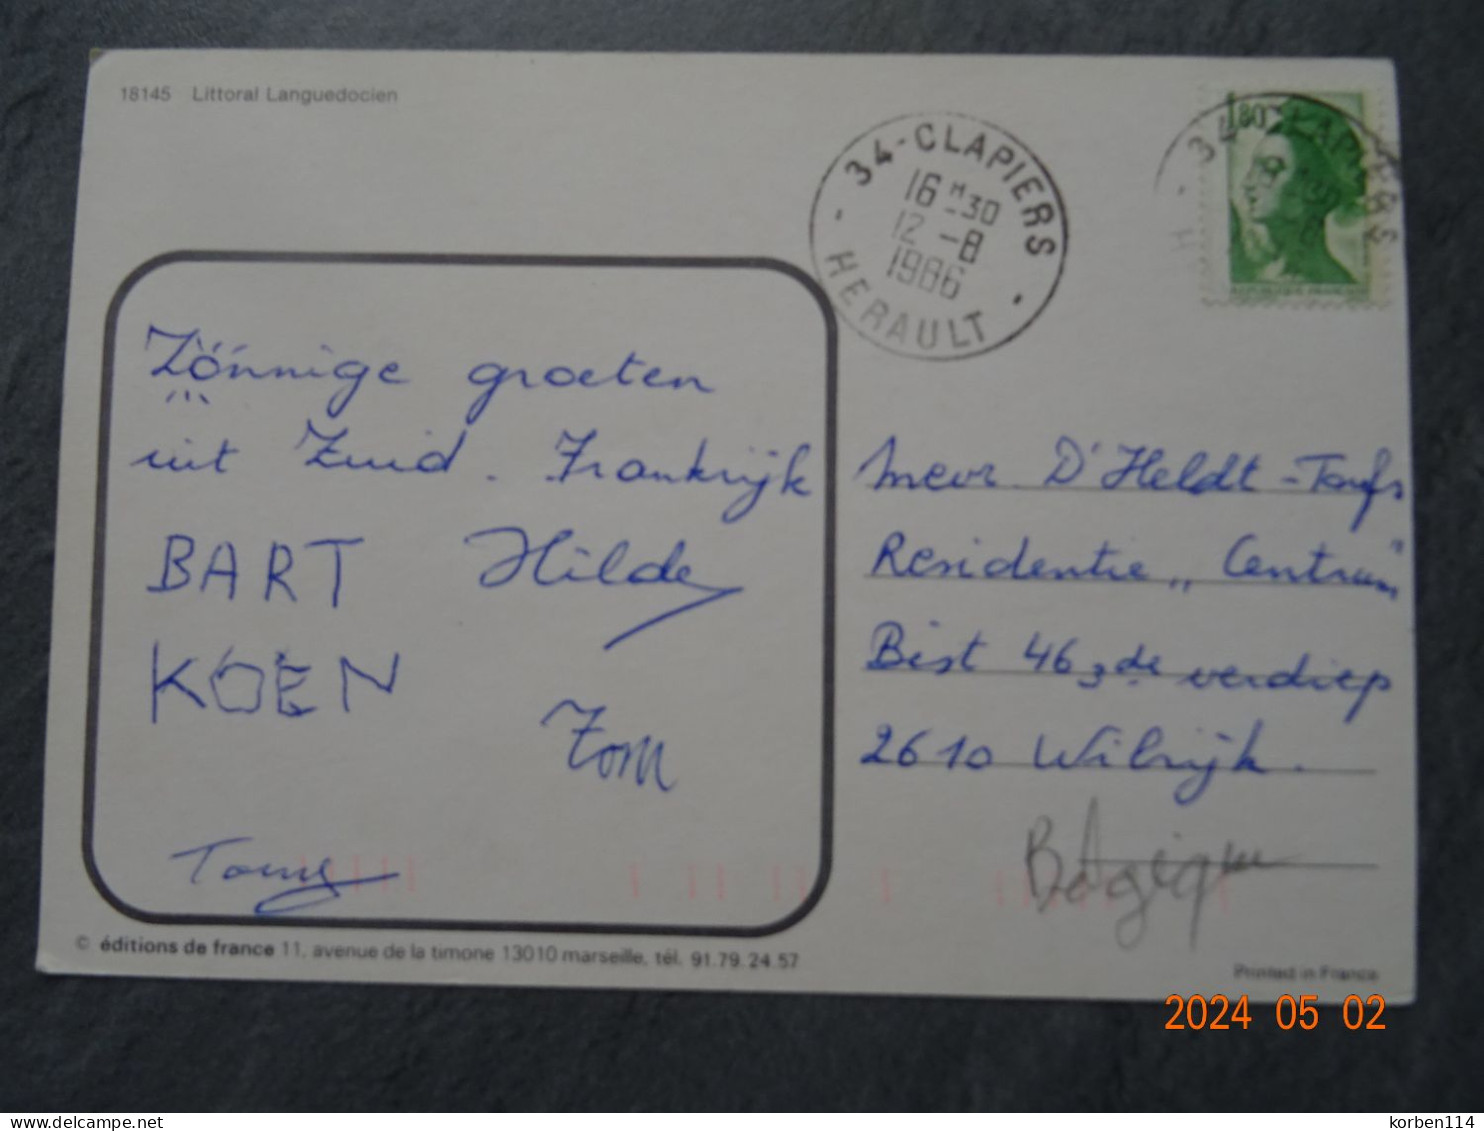 18145 Littoral Languedocien
34-CLAPIERS
16 H 30
12 -8
1986
HERAULT
1,80
34-CLAPIERS
Zönnige groeten
uit Zuid. Frankrijk
BART Hilde
KOEN
Tom
Mevr. D'Heldt -
Residentie „Centrum"
Bist 46 3de verdiep
2610 Wilrijk.
Belgique
© éditions de france 11, avenue de la timone 13010 marseille, tél. 91.79.24.57
Printed in France
2024 05 02
korben114